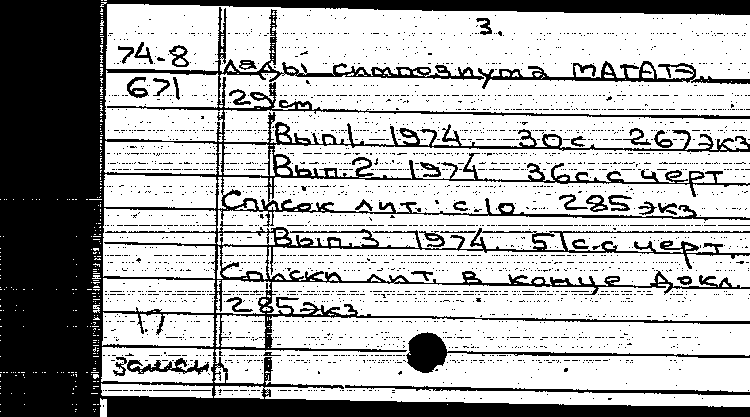 3.
74-8
671
лады симпозиума МАГАТЭ..
29 см.
Вып.1. 1974. 30с. 267экз
Вып.2. 1974 36с.с черт.
Список лит.: с.10. 285экз
Вып.3. 1974. 51с.с черт.
Списки лит. в конце докл.
285экз.
17
замена